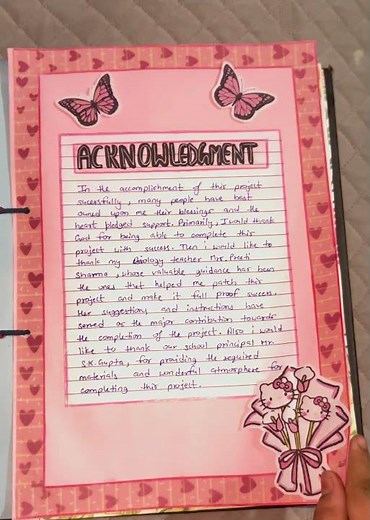 ACKNOWLEDGMENT
In the accomplishment of this project
sucessfully, many people have best
owned upon me their blessings and the
heart pledged support. Primarily, I would thank
God for being able to complete this
project with success. Then i would like to
thank my Biology teacher Mrs. Preti
Sharma, whose valuable guidance has been
the ones that helped me patch this
project and make it full proof success.
Her suggestions and instructions have
served as the major contribution towards
the completion of the project. Also i would
like to thank our school principal Mr.
S.K. Gupta, for proiding the required
materials and wonderful atmorphere for
completing this project.